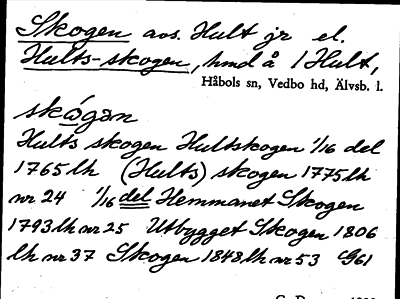 Skogen avs. Hult jr el.
Hults-skogen, hmd å 1 Hult,
Håbols sn, Vedbo hd, Älvsb. l.
skó̲gan
Hults skogen Hultskogen 1/16 del
1765 lh (Hults) skogen 1775 lh
nr 24 1/16 del Hemmanet Skogen
1793 lh nr 25 Utbygget Skogen 1806
lh nr 37 Skogen 1848 lh nr 53 G61